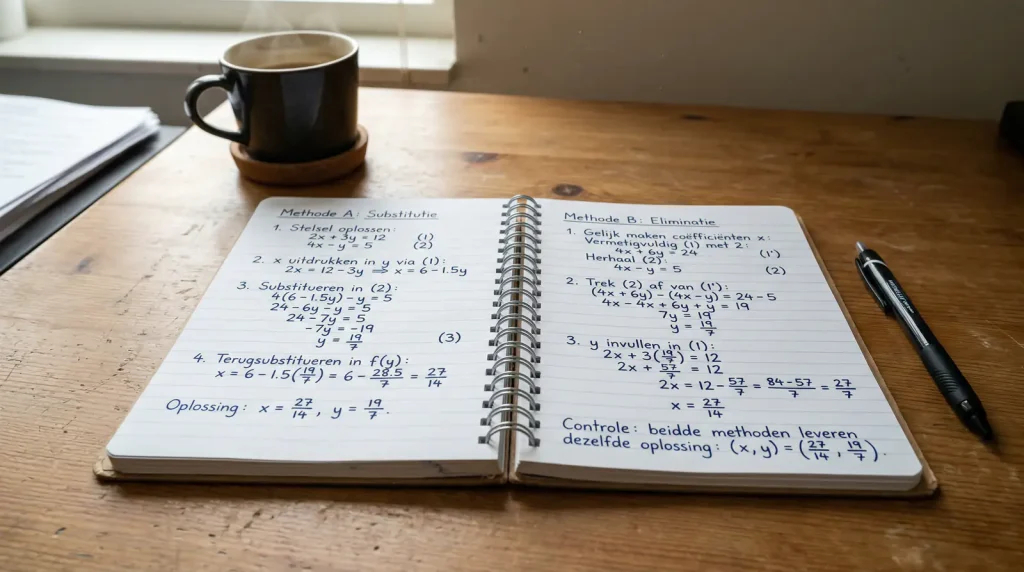 Methode A: Substitutie
1. Stelsel oplossen:
2x + 3y = 12 (1)
4x - y = 5 (2)
2. x uitdrukken in y via (1):
2x = 12 - 3y ⇒ x = 6 - 1.5y
3. Substitueren in (2):
4(6 - 1.5y) - y = 5
24 - 6y - y = 5
24 - 7y = 5
-7y = -19
y = 19/7 (3)
4. Terugsubstitueren in f(y):
x = 6 - 1.5(19/7) = 6 - 28.5/7 = 27/14
Oplossing: x = 27/14, y = 19/7.
Methode B: Eliminatie
1. Gelijk maken coëfficiënten x:
Vermetigvuldig (1) met 2:
4x + 6y = 24 (1')
Herhaal (2):
4x - y = 5 (2)
2. Trek (2) af van (1'):
(4x + 6y) - (4x - y) = 24 - 5
4x - 4x + 6y + y = 19
7y = 19
y = 19/7
3. y invullen in (1):
2x + 3(19/7) = 12
2x + 57/7 = 12
2x = 12 - 57/7 = 84-57/7 = 27/7
x = 27/14
Controle: beidde methoden leveren
dezelfde oplossing: (x, y) = (27/14, 19/7).